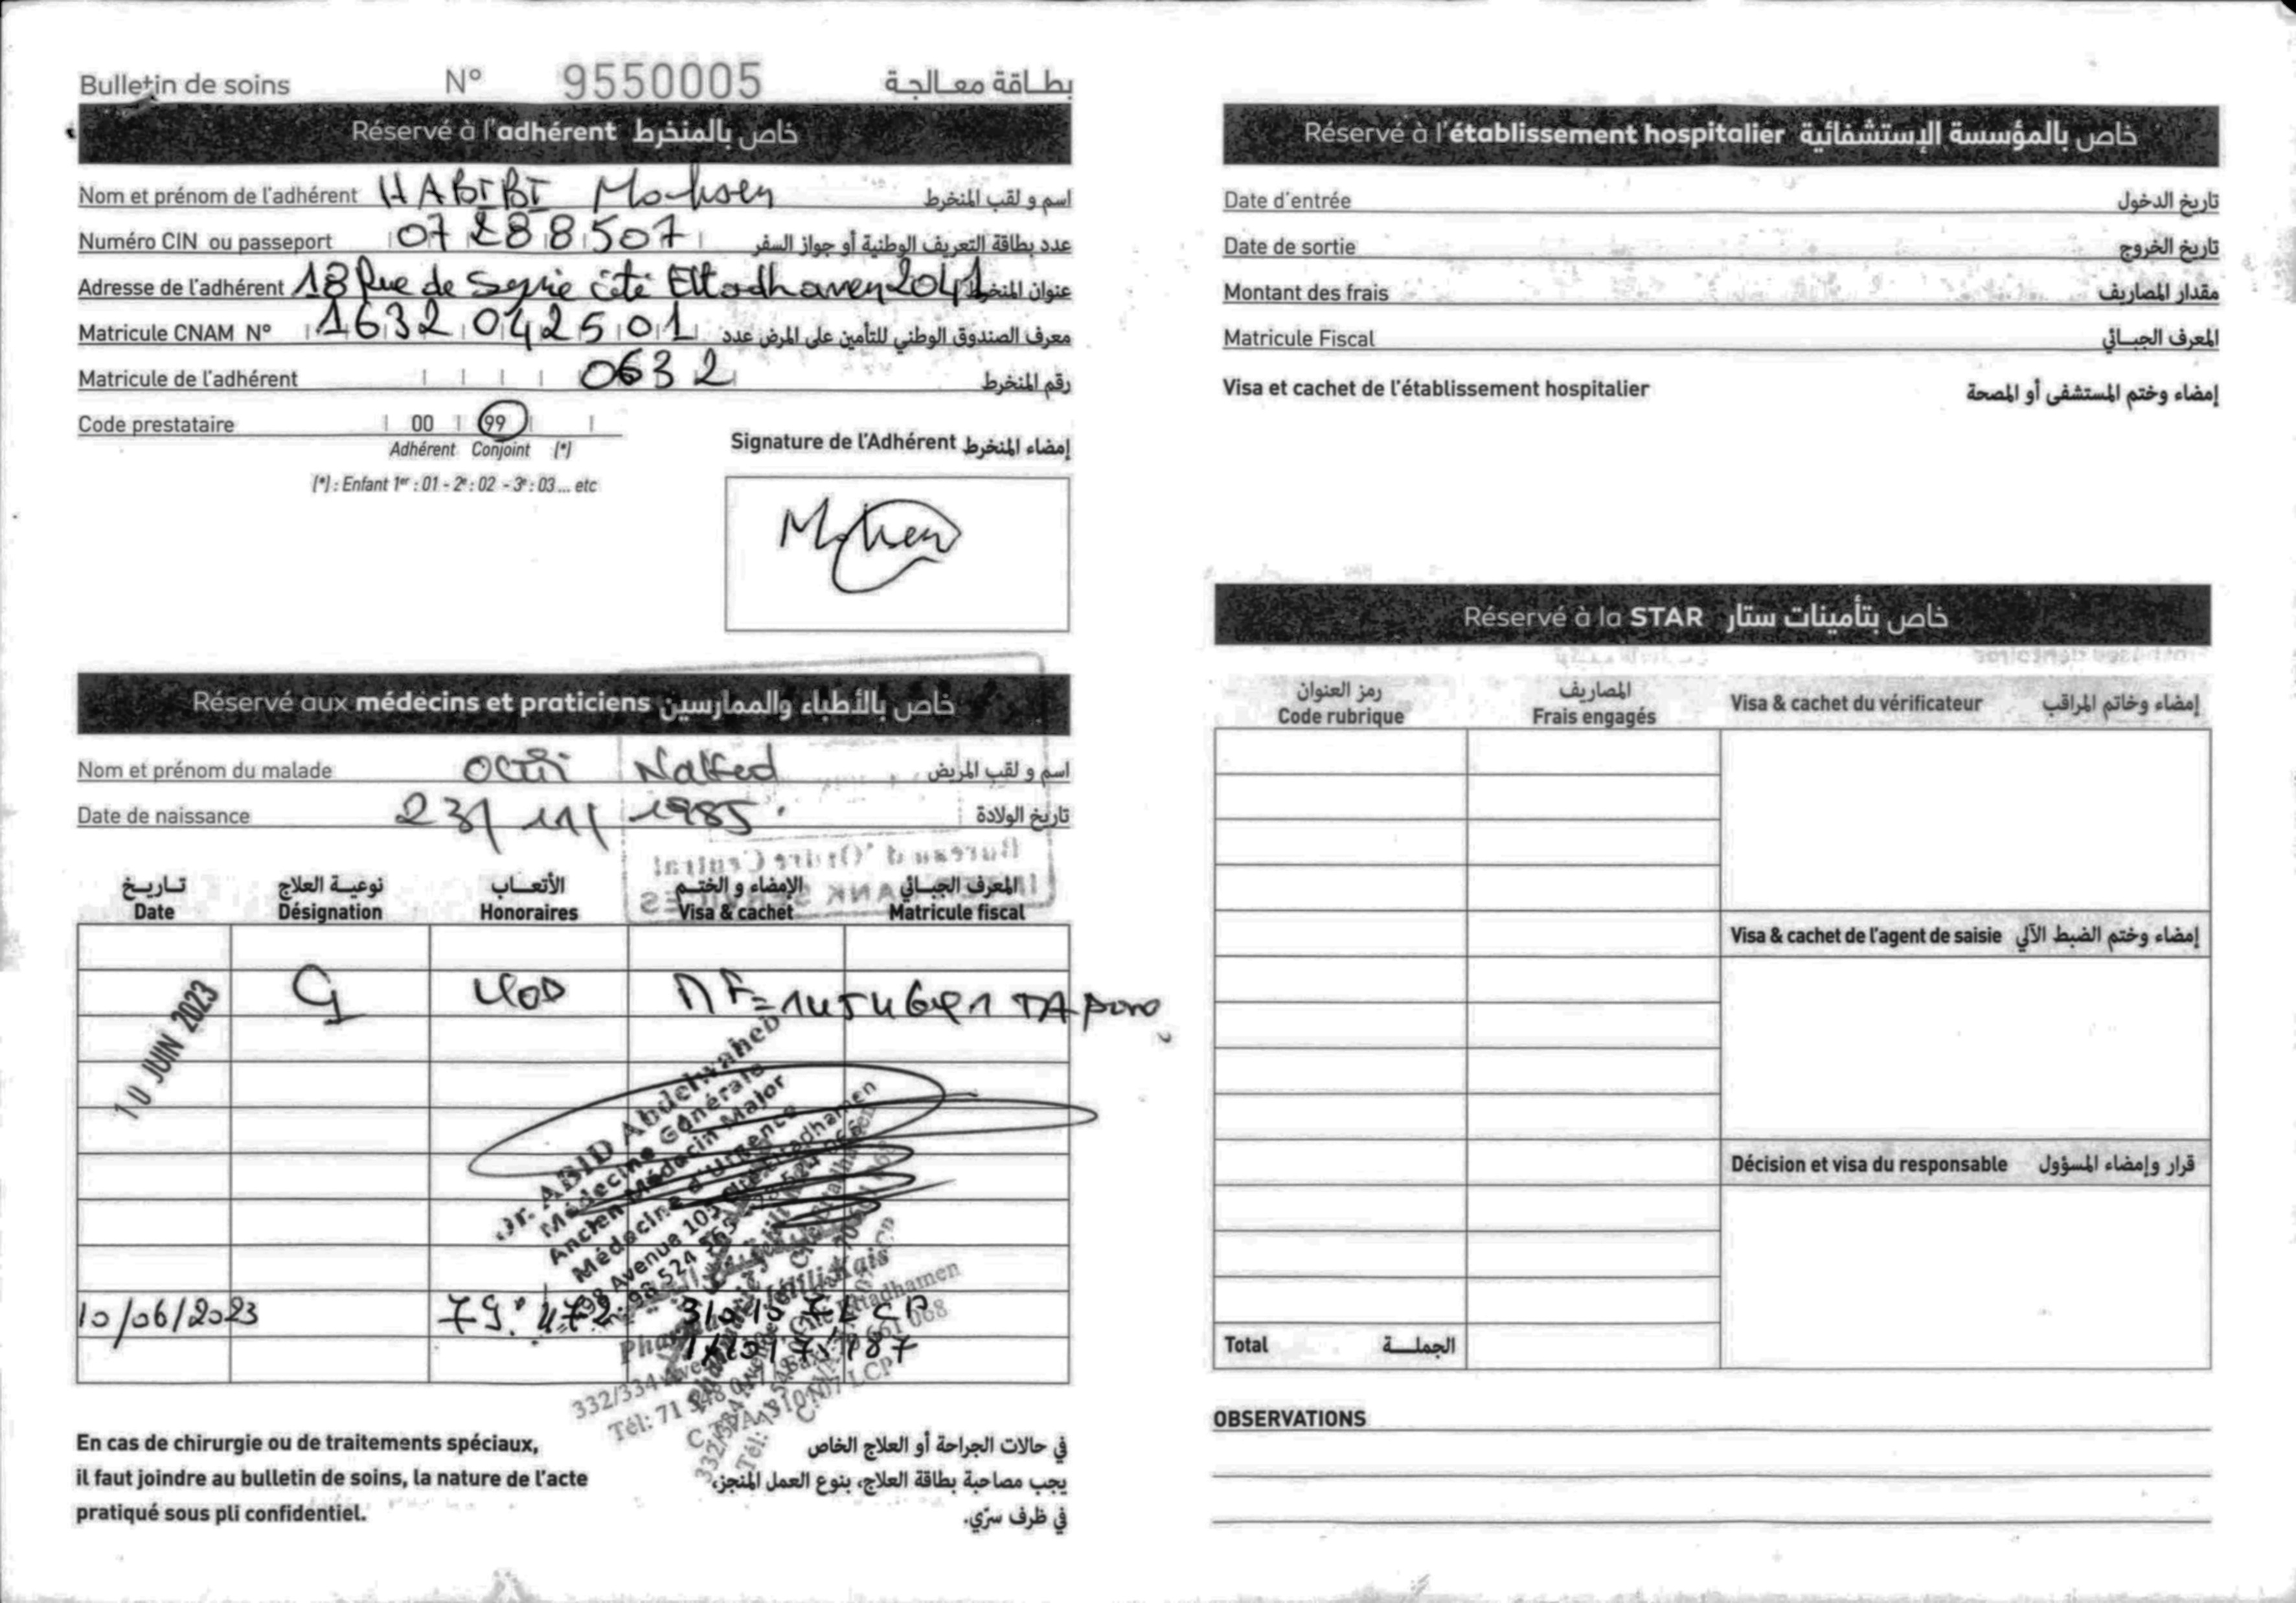 Bulletin de soins N° 9550005 بطاقة معالجة
Réservé à l'adhérent خاص بالمنخرط
Nom et prénom de l'adhérent HABIBI Mohsen اسم و لقب المنخرط
Numéro CIN ou passeport 07288507 عدد بطاقة التعريف الوطنية أو جواز السفر
Adresse de l'adhérent 18 Rue de Syrie cité Ettadhamen 2041 عنوان المنخرط
Matricule CNAM N° 1632042501 معرف الصندوق الوطني للتأمين على المرض عدد
Matricule de l'adhérent 0632 رقم المنخرط
Code prestataire 00 99
Adhérent Conjoint (*)
(*) : Enfant 1er : 01 - 2e : 02 - 3e : 03 ... etc
Signature de l'Adhérent إمضاء المنخرط
Mohsen
Réservé aux médecins et praticiens خاص بالأطباء والممارسين
Nom et prénom du malade اسم و لقب المريض
Date de naissance 23/11/1985 تاريخ الولادة
Bureau d'Ordre Central
تاريخ نوعية العلاج الأتعاب الإمضاء و الختم المعرف الجبائي
Date Désignation Honoraires Visa & cachet Matricule fiscal
10 JUIN 2023 40D
Dr. ABID Abdelwaheb
Médecine Générale
Ancien Médecin Major
Médecine d'Urgence
10/06/2023 79.472
332/334
Tél: 71
En cas de chirurgie ou de traitements spéciaux,
il faut joindre au bulletin de soins, la nature de l'acte
pratiqué sous pli confidentiel.
في حالات الجراحة أو العلاج الخاص
يجب مصاحبة بطاقة العلاج، بنوع العمل المنجز،
في ظرف سرّي.
Réservé à l'établissement hospitalier خاص بالمؤسسة الإستشفائية
Date d'entrée تاريخ الدخول
Date de sortie تاريخ الخروج
Montant des frais مقدار المصاريف
Matricule Fiscal المعرف الجبائي
Visa et cachet de l'établissement hospitalier إمضاء وختم المستشفى أو المصحة
Réservé à la STAR خاص بتأمينات ستار
رمز العنوان المصاريف
Code rubrique Frais engagés Visa & cachet du vérificateur إمضاء وخاتم المراقب
Visa & cachet de l'agent de saisie إمضاء وختم الضبط الآلي
Décision et visa du responsable قرار وإمضاء المسؤول
Total الجملة
OBSERVATIONS